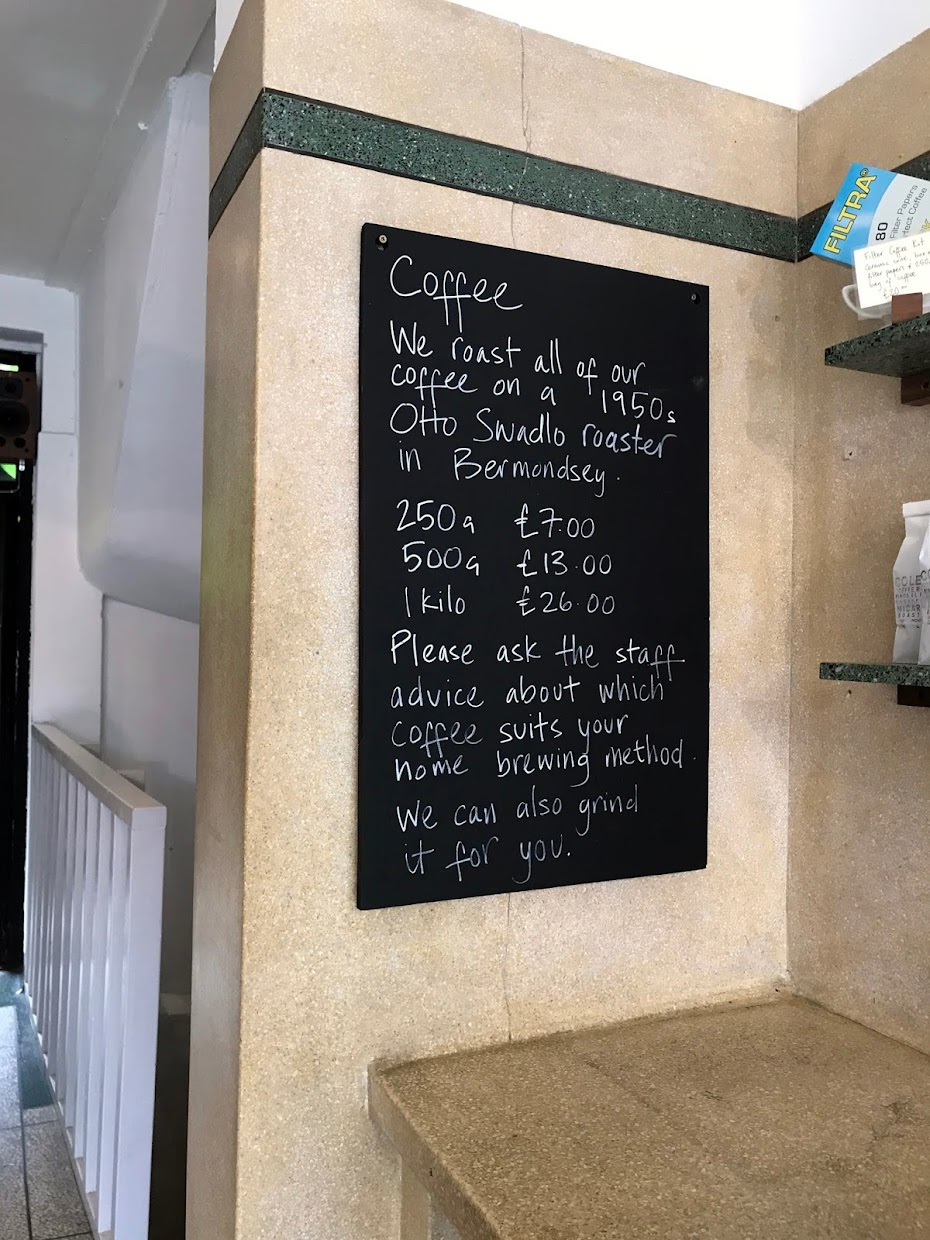 Coffee
We roast all of our
coffee on a 1950s
Otto Swadlo roaster
in Bermondsey.
250g £7.00
500g £13.00
1 kilo £26.00
Please ask the staff
advice about which
coffee suits your
home brewing method.
We can also grind
it for you.
FILTRA®
80
Filter Papers
Coffee
Filter Coffee Kit
filter papers
bag of coffee
COLE
NICAR
ROAST